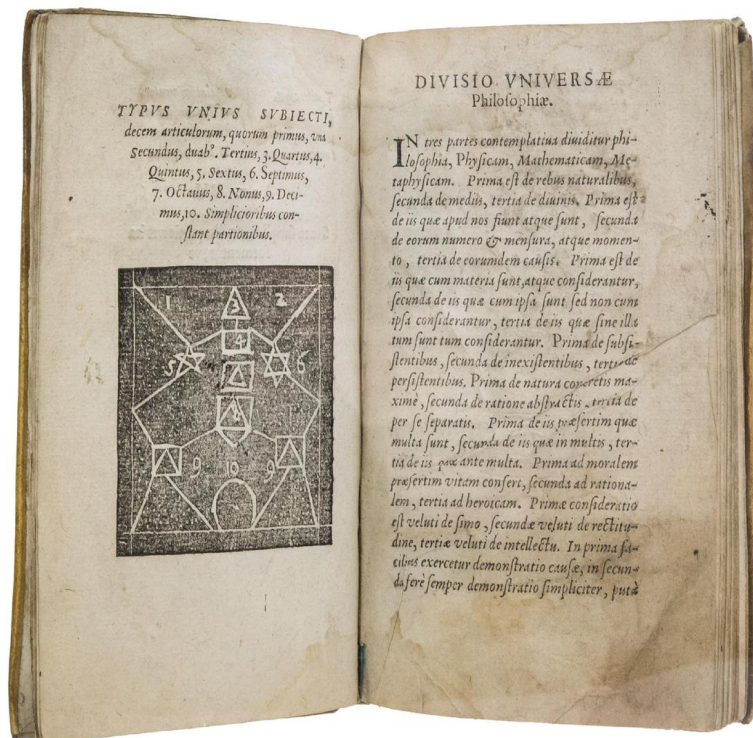 TYPVS VNIVS SVBIECTI,
decem articulorum, quorum primus, vna
Secundus, duabꝰ. Tertius, 3. Quartus, 4.
Quintus, 5, Sextus, 6. Septimus,
7. Octauus, 8. Nonus, 9. Deci-
mus, 10. Simplicioribus con-
ſtant partionibus.
1 3 2
4
5 6
9 10 9
DIVISIO VNIVERSÆ
Philoſophiæ.
IN tres partes contemplatiua diuiditur phi-
loſophia, Phyſicam, Mathematicam, Me-
taphyſicam. Prima eſt de rebus naturalibus,
ſecunda de mediis, tertia de diuinis. Prima eſt
de iis quæ apud nos fiunt atque ſunt, ſecunda
de eorum numero & menſura, atque momen-
to, tertia de eorumdem cauſis. Prima eſt de
iis quæ cum materia ſunt, atque conſiderantur,
ſecunda de iis quæ cum ipſa ſunt ſed non cum
ipſa conſiderantur, tertia de iis quæ ſine illa
tum ſunt tum conſiderantur. Prima de ſubſi-
ſtentibus, ſecunda de inexiſtentibus, tertia de
perſiſtentibus. Prima de natura concretis ma-
ximè, ſecunda de ratione abſtractis, tertia de
per ſe ſeparatis. Prima de iis præſertim quæ
multa ſunt, ſecunda de iis quæ in multis, ter-
tia de iis quæ ante multa. Prima ad moralem
præſertim vitam confert, ſecunda ad rationa-
lem, tertia ad heroicam. Primæ conſideratio
eſt veluti de ſimo, ſecundæ veluti de rectitu-
dine, tertiæ veluti de intellectu. In prima fa-
cibus exercetur demonſtratio cauſæ, in ſecun-
da ferè ſemper demonſtratio ſimpliciter, putà